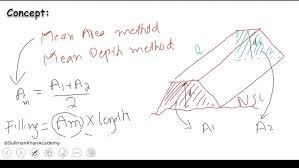 Concept:
Mean Area method
Mean Depth method
Am = A1+A2
2
Filling = (Am) x length
NSL
A1
A2
@SulimanKhanAcademy